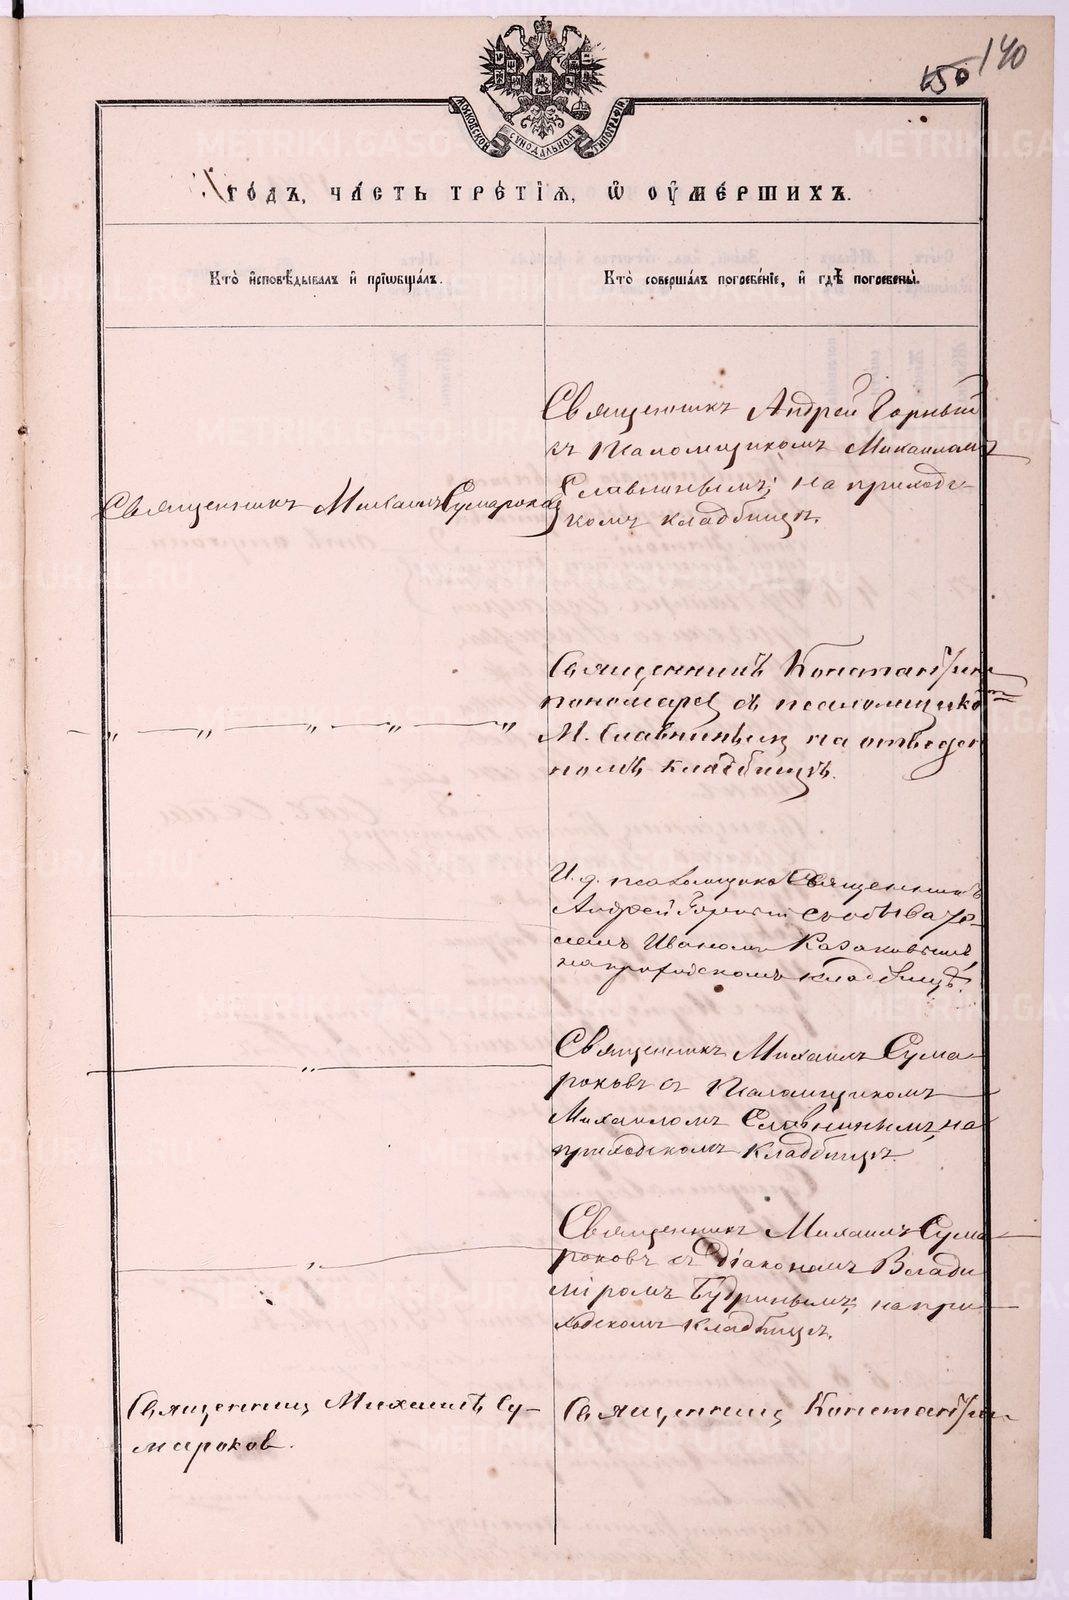 150 140
МОСКОВСКОЙ СѴНОДАЛЬНОЙ ТИПОГРАФІИ.
го́дъ, ча́сть тре́тїѧ, ѡ҆ ᲂу҆ме́ршихъ.
Кто̀ и҆сповѣ́дывалъ и҆ прїѡбща́лъ.
Кто̀ соверша́лъ погребе́нїе, и҆ гдѣ̀ погребены̀.
Священникъ Андрей Горный
съ Псаломщикомъ Михаиломъ
Славнинымъ; на приход-
скомъ кладбищѣ.
Священникъ Михаилъ Сумароковъ
Священникъ Константинъ
Пономаревъ съ псаломщикомъ
М. Славнинымъ на отведен
номъ кладбищѣ.
„ „ „ „ „
И. д. псаломщика Священникъ
Андрей Горный съ
Иваномъ Казаковымъ,
на приходскомъ кладбищѣ.
Священникъ Михаилъ Сума-
роковъ съ Псаломщикомъ
Михаиломъ Славнинымъ, на
приходскомъ кладбищѣ.
„
Священникъ Михаилъ Сума-
роковъ съ Діакономъ Влади
міромъ Будринымъ; на при-
ходскомъ кладбищѣ.
„
Священникъ Михаилъ Су-
мароков.
Священникъ Константинъ
METRIKI.GASO-URAL.RU